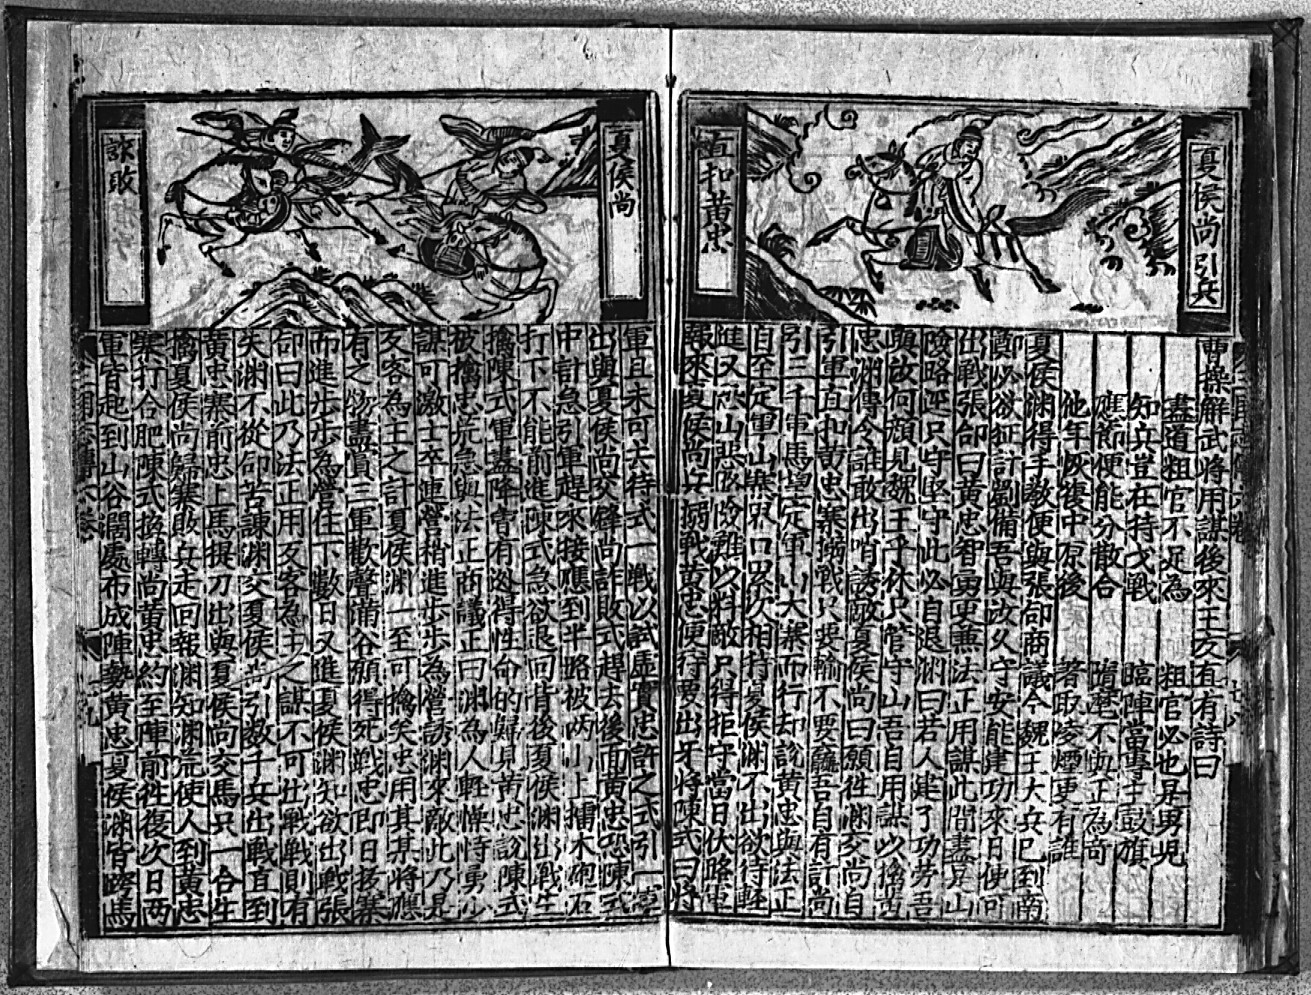 夏侯尚引兵
直扣黃忠
曹操解武將用謀後來王友直有詩曰
盡道粗官不足為　粗官必也是男兒
知兵豈在持戈戰　臨陣當專主鼓旗
應節便能分散合　隋麾不與正為奇
他年恢復中原後　著取凌煙更有誰
夏侯淵得手教便與張郃商議今魏王大兵已到南
鄭必欲征討劉備吾與汝久守安能建功來日使可
出戰張郃曰黃忠智勇更兼法正用謀此間盡是山
險路逕只守堅守此必自退淵曰若人建了功勞吾
與汝何顏見魏王乎休只管守山吾自用謀以擒黃
忠淵傳令誰敢出哨誘敵夏侯尚曰願往淵交尚自
引軍直扣黃忠寨搦戰只要輸不要贏吾自有計尚
引三千軍馬望定軍山大寨而行却說黃忠與法正
自至定軍山寨界口累次相持夏侯淵不出欲待輕
進又恐山惡路險難以料敵只得拒守當日伏路軍
報來夏侯尚兵搦戰黃忠便行要出牙將陳式曰將
夏侯尚
詐敗
軍且未可去待式一戰以試虛實忠許之式引一軍
出與夏侯尚交鋒尚詐敗式趕去後面黃忠恐陳式
中計急引軍趕來接應到半路被兩山上擂木砲石
打下不能前進陳式急欲退回背後夏侯淵出戰生
擒陳式軍盡降曹有逃得性命的歸見黃忠說陳式
被擒忠荒急與法正商議正曰淵為人輕慓恃勇少
謀可激士卒連營稍進步步為營誘淵來敵此乃是
反客為主之計夏侯淵一至可擒矣忠用其某將應
有之物盡賞三軍歡聲滿谷願得死戰忠即日拔寨
而進步步為營住下數日又進夏侯淵知欲出戰張
郃曰此乃法正用反客為主之謀不可出戰戰則有
失淵不從郃苦諫淵交夏侯尚引數千兵出戰直到
黃忠寨前忠上馬提刀出與夏侯尚交馬只一合生
擒夏侯尚歸寨敗兵走回報淵知淵荒使人到黃忠
寨打合肥陳式換轉尚黃忠約至陣前往復次日兩
軍皆起到山谷闊處布成陣勢黃忠夏侯淵皆跨馬